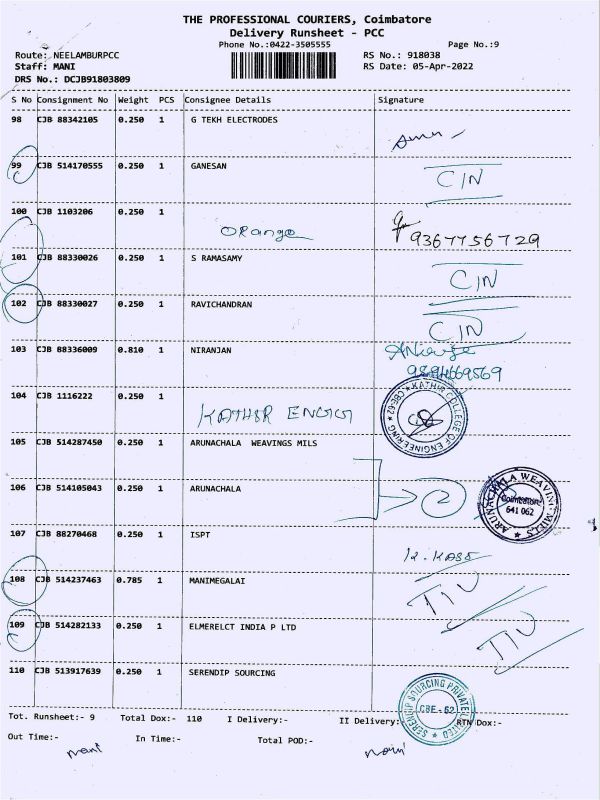 THE PROFESSIONAL COURIERS, Coimbatore
Delivery Runsheet - PCC
Phone No.:0422-3505555 Page No.:9
Route: NEELAMBURPCC RS No.: 918038
Staff: MANI RS Date: 05-Apr-2022
DRS No.: DCJB91803809
S No Consignment No Weight PCS Consignee Details Signature
98 CJB 88342105 0.250 1 G TEKH ELECTRODES
99 CJB 514170555 0.250 1 GANESAN CIN
100 CJB 1103206 0.250 1 Orange 9367756729
101 CJB 88330026 0.250 1 S RAMASAMY CIN
102 CJB 88330027 0.250 1 RAVICHANDRAN CIN
103 CJB 88336009 0.810 1 NIRANJAN
104 CJB 1116222 0.250 1 KATHIR ENGG KATHIR COLLEGE OF ENGINEERING
105 CJB 514287450 0.250 1 ARUNACHALA WEAVINGS MILS
106 CJB 514105043 0.250 1 ARUNACHALA 2 ARUNACHALA WEAVING MILLS Coimbatore 641 062
107 CJB 88270468 0.250 1 ISPT
108 CJB 514237463 0.785 1 MANIMEGALAI
109 CJB 514282133 0.250 1 ELMERELCT INDIA P LTD
110 CJB 513917639 0.250 1 SERENDIP SOURCING SERENDIP SOURCING PRIVATE LIMITED CBE - 62
Tot. Runsheet:- 9 Total Dox:- 110 I Delivery:- II Delivery: RTN Dox:-
Out Time:- In Time:- Total POD:-
mani mani